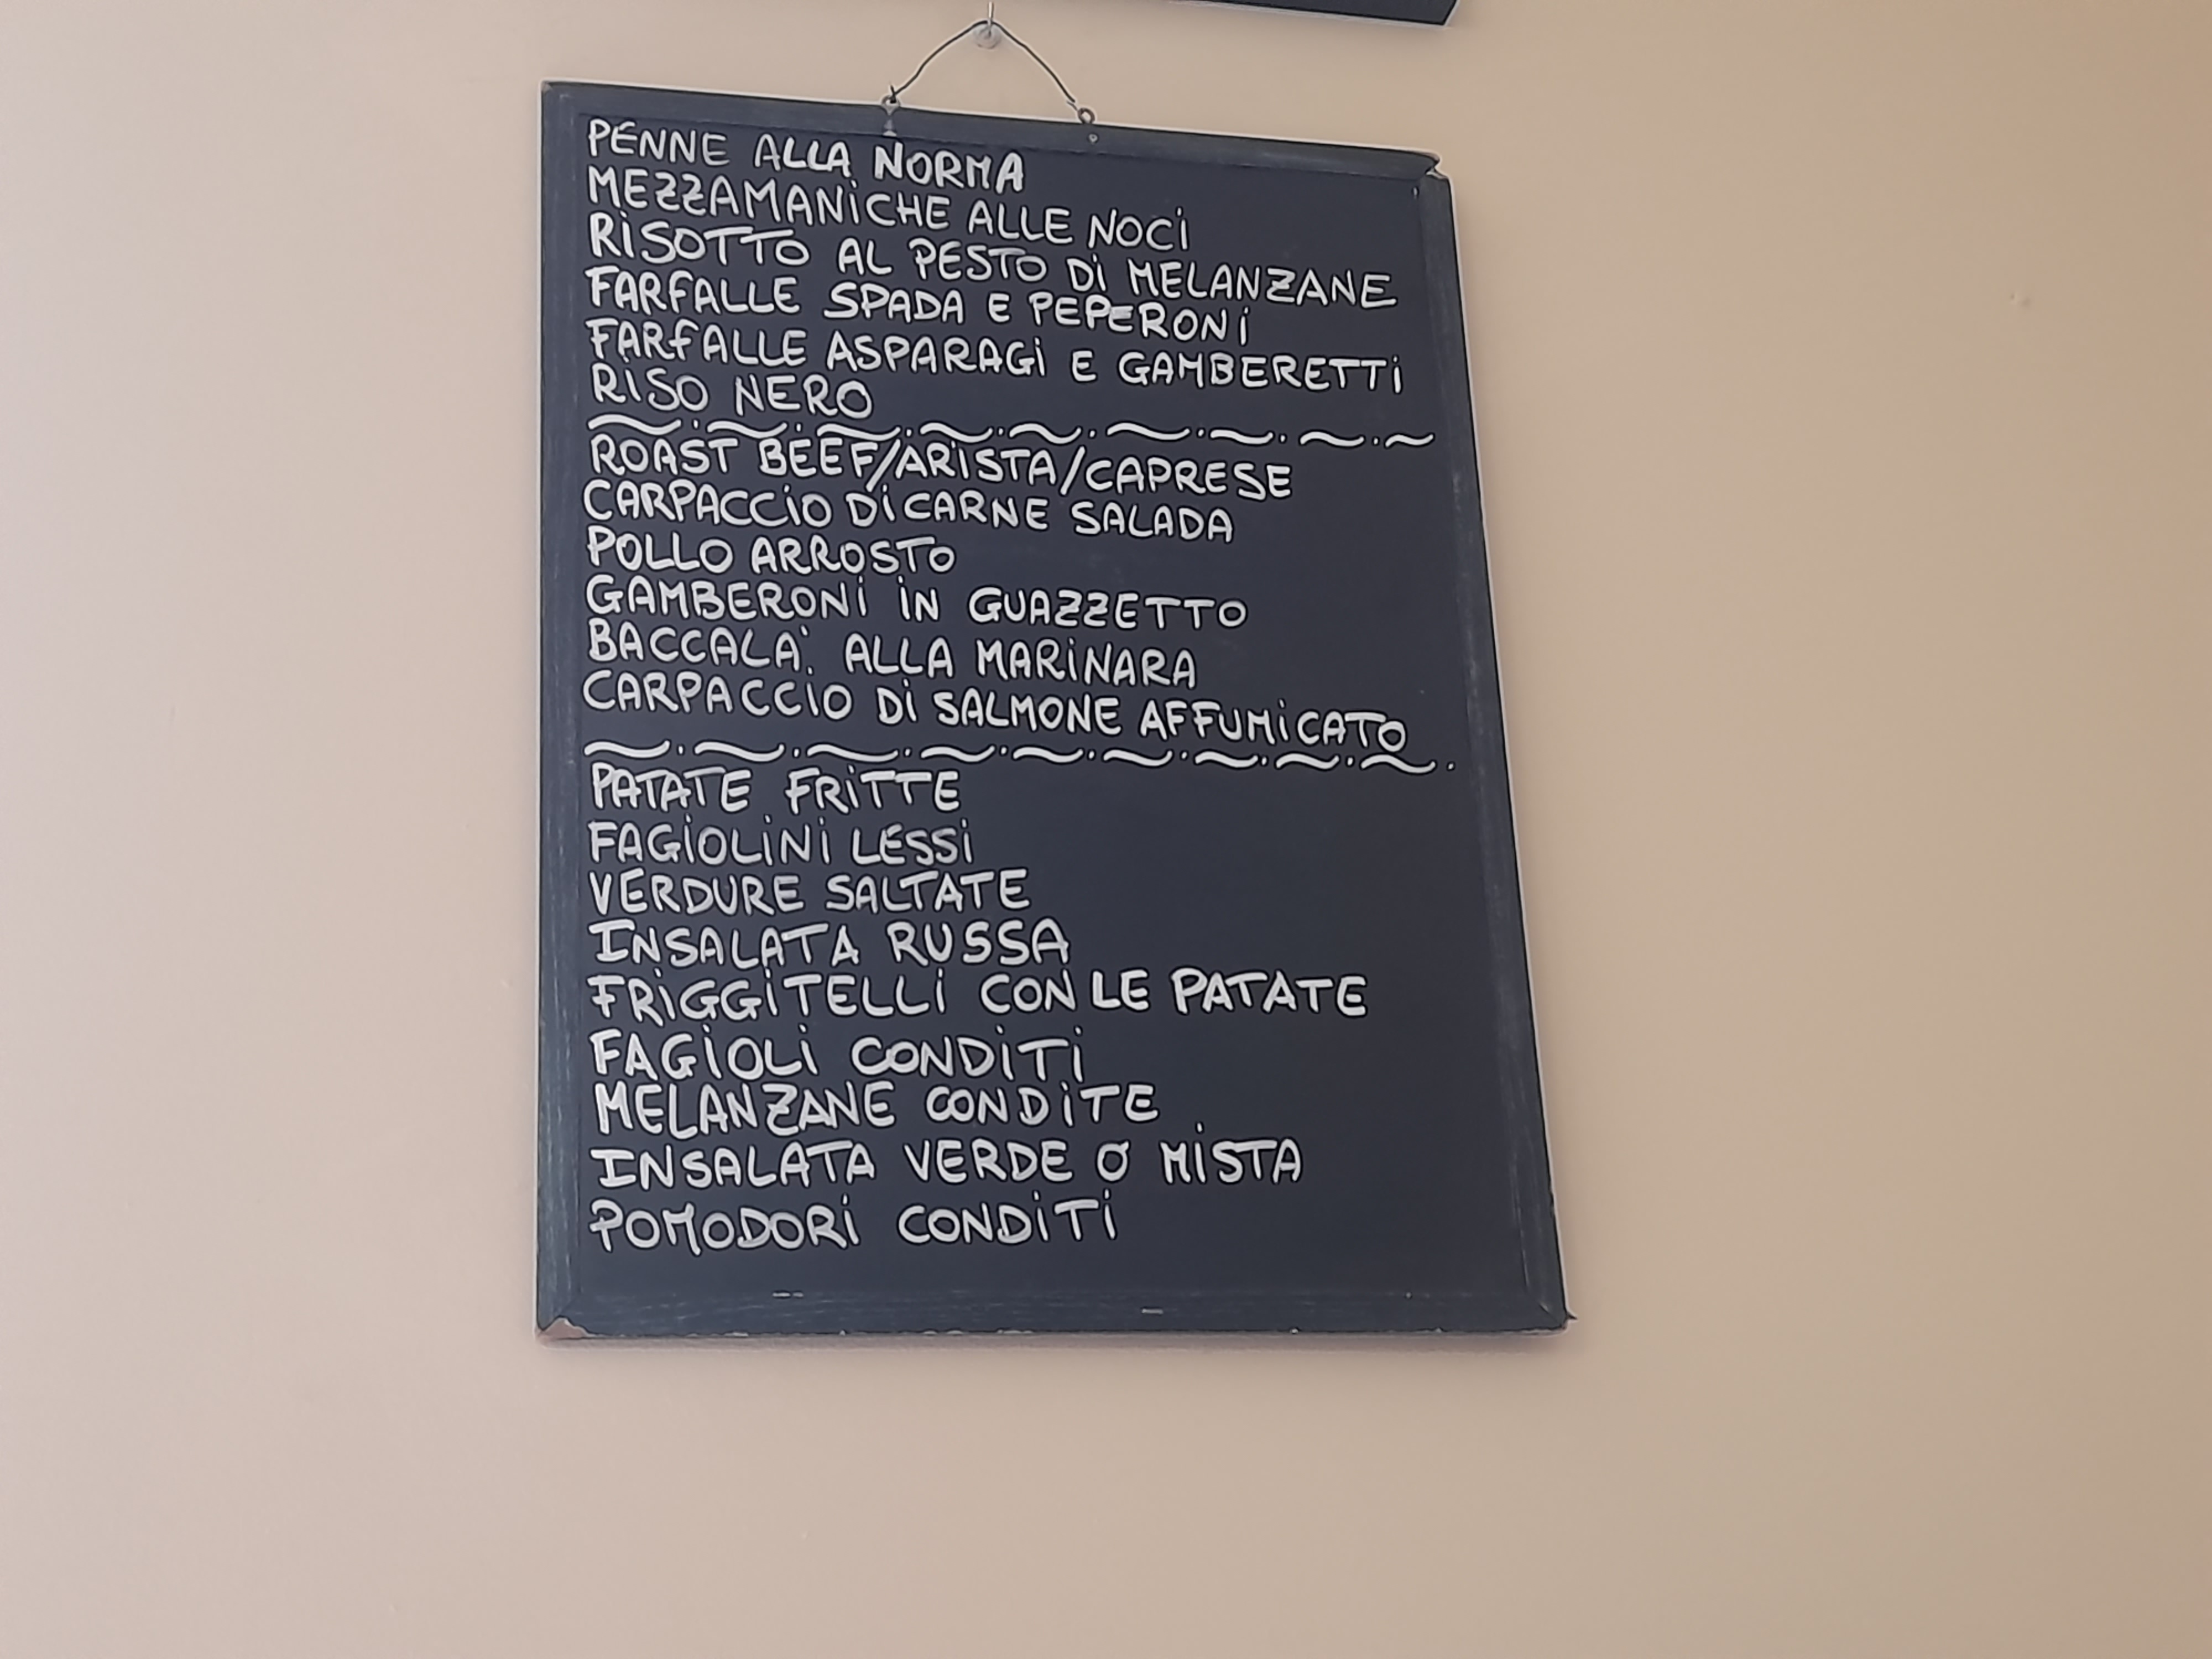 PENNE ALLA NORMA
MEZZAMANiCHE ALLE NOCi
RiSOTTO AL PESTO Di MELANZANE
FARFALLE SPADA E PEPERONi
FARFALLE ASPARAGi E GAMBERETTi
RiSO NERO
ROAST BEEF/ARiSTA/CAPRESE
CARPACCiO Di CARNE SALADA
POLLO ARROSTO
GAMBERONi iN GUAZZETTO
BACCALA' ALLA MARiNARA
CARPACCiO Di SALMONE AFFUMiCATO
PATATE FRiTTE
FAGiOLiNi LESSi
VERDURE SALTATE
INSALATA RUSSA
FRiGGiTELLi CON LE PATATE
FAGiOLi CONDiTi
MELANZANE CONDiTE
INSALATA VERDE O MiSTA
POMODORi CONDiTi